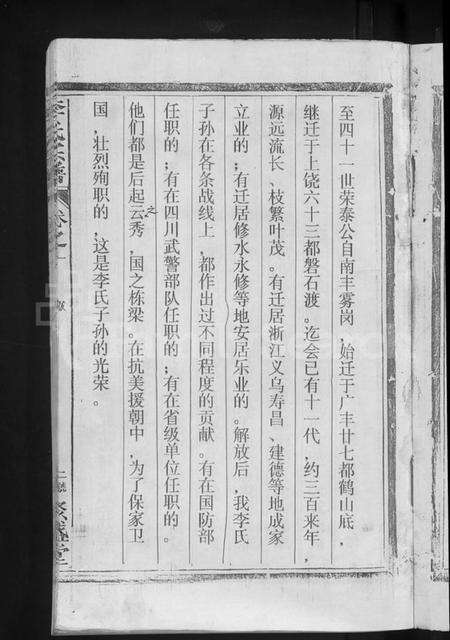 至四十一世荣泰公自南丰雾岗，始迁于广丰廿七都鹤山底，
继迁于上饶六十三都磐石渡。迄会已有十一代，约三百来年，
源远流长、枝繁叶茂。有迁居浙江义乌寿昌、建德等地成家
立业的；有迁居修水永修等地安居乐业的。解放后，我李氏
子孙在各条战线上，都作出过不同程度的贡献。有在国防部
任职的；有在四川武警部队任职的；有在省级单位任职的。
他们都是后起云秀，国之栋梁。在抗美援朝中，为了保家卫
之
国，壮烈殉职的，这是李氏子孙的光荣。
李氏宗谱
卷之一
堂